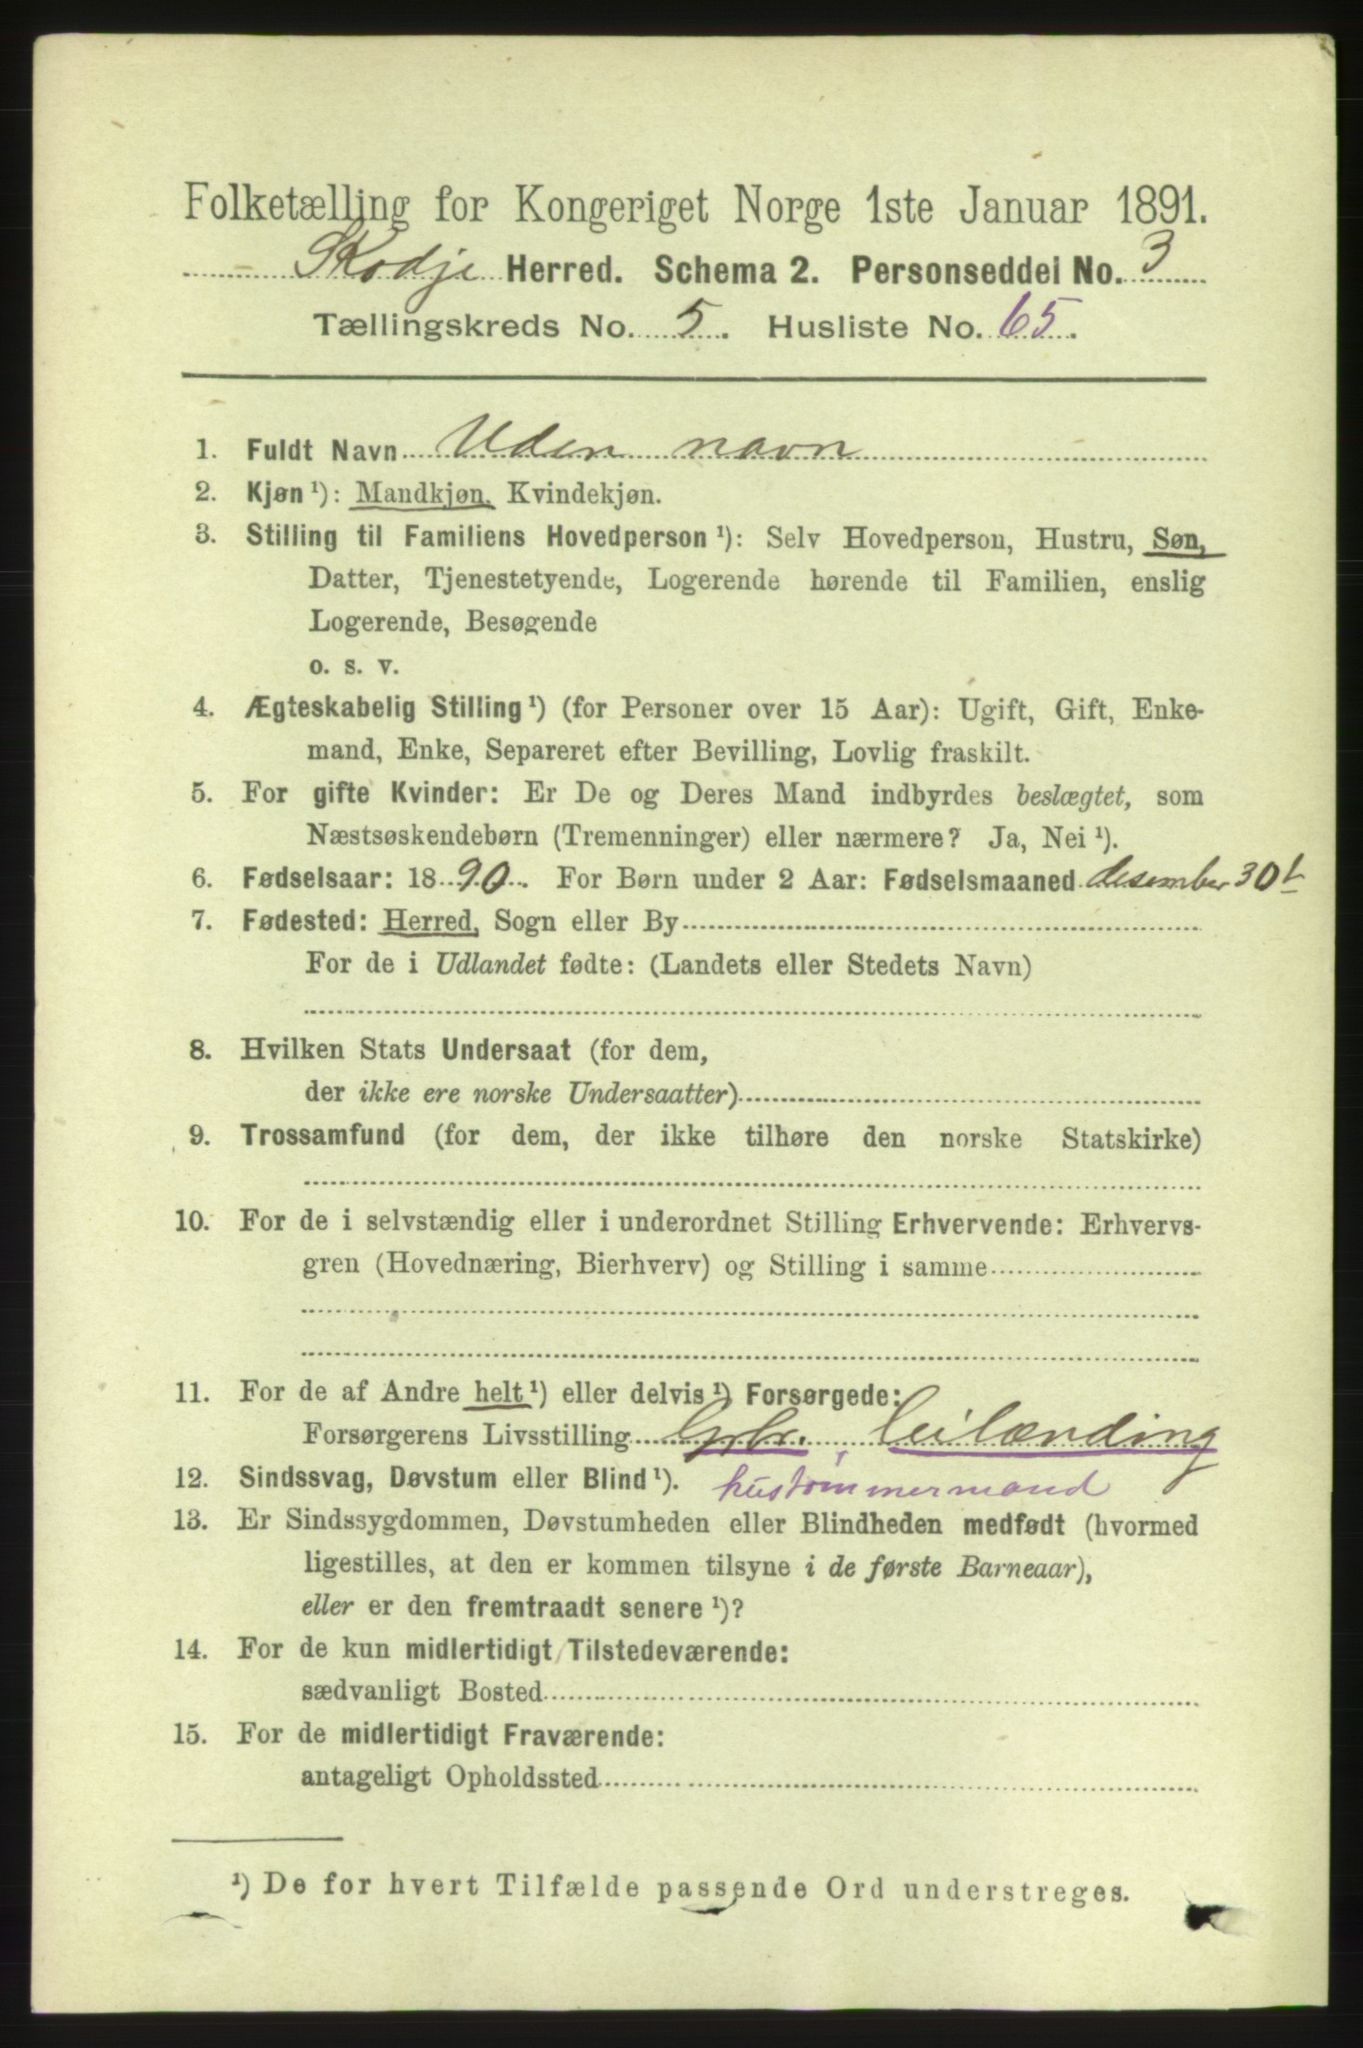 Folketælling for Kongeriget Norge 1ste Januar 1891.
Skodje Herred. Schema 2. Personseddel No. 3
Tællingskreds No. 5. Husliste No. 65.
1. Fuldt Navn Uden navn
2. Kjøn ¹): Mandkjøn, Kvindekjøn.
3. Stilling til Familiens Hovedperson ¹): Selv Hovedperson, Hustru, Søn,
Datter, Tjenestetyende, Logerende hørende til Familien, enslig
Logerende, Besøgende
o. s. v.
4. Ægteskabelig Stilling ¹) (for Personer over 15 Aar): Ugift, Gift, Enke-
mand, Enke, Separeret efter Bevilling, Lovlig fraskilt.
5. For gifte Kvinder: Er De og Deres Mand indbyrdes beslægtet, som
Næstsøskendebørn (Tremenninger) eller nærmere? Ja, Nei ¹).
6. Fødselsaar: 1890. For Børn under 2 Aar: Fødselsmaaned desember 30t
7. Fødested: Herred, Sogn eller By
For de i Udlandet fødte: (Landets eller Stedets Navn)
8. Hvilken Stats Undersaat (for dem,
der ikke ere norske Undersaatter)
9. Trossamfund (for dem, der ikke tilhøre den norske Statskirke)
10. For de i selvstændig eller i underordnet Stilling Erhvervende: Erhvervs-
gren (Hovednæring, Bierhverv) og Stilling i samme
11. For de af Andre helt ¹) eller delvis ¹) Forsørgede:
Forsørgerens Livsstilling Gbr. leilænding
12. Sindssvag, Døvstum eller Blind ¹). hustømmermand
13. Er Sindssygdommen, Døvstumheden eller Blindheden medfødt (hvormed
ligestilles, at den er kommen tilsyne i de første Barneaar),
eller er den fremtraadt senere ¹)?
14. For de kun midlertidigt Tilstedeværende:
sædvanligt Bosted
15. For de midlertidigt Fraværende:
antageligt Opholdssted
¹) De for hvert Tilfælde passende Ord understreges.